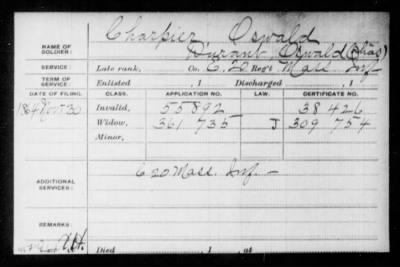 Charpier Oswald
NAME OF SOLDIER: Durant, Oswald (alias)
SERVICE: Late rank, Co. C, 20 Reg't Mass. Inf.
TERM OF SERVICE: Enlisted , 1 Discharged , 1
DATE OF FILING. CLASS. APPLICATION NO. LAW. CERTIFICATE NO.
1864 Nov. 30 Invalid, 55892 38426
Widow, 361 735 J 309 754
Minor,
ADDITIONAL SERVICES: C 20 Mass. Inf. —
REMARKS:
Died , 1 , at